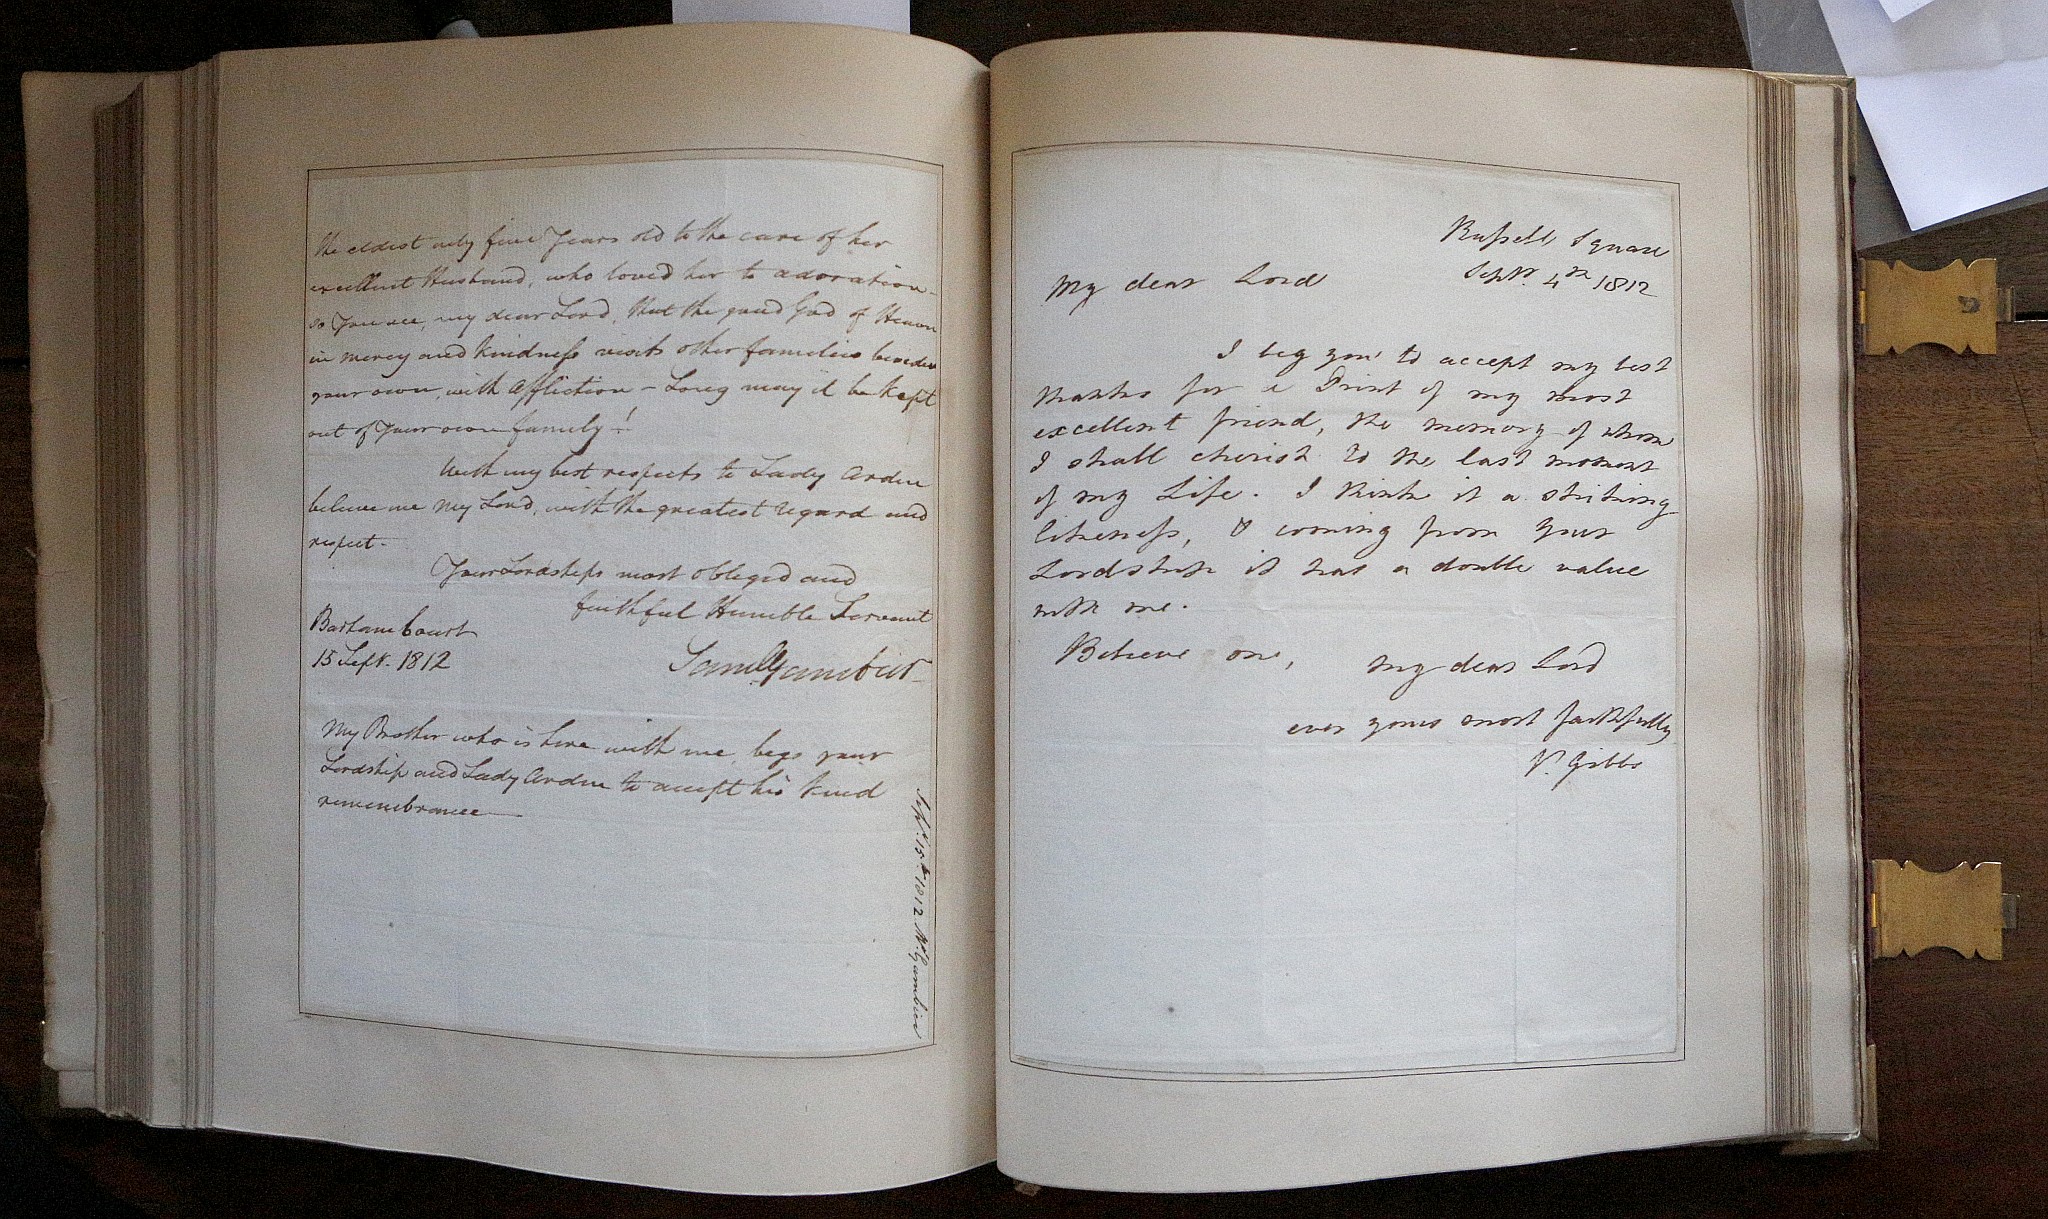 the eldest only five Years old to the care of her
excellent Husband, who loved her to adoration -
so You see, my dear Lord, that the good God of Heaven
in mercy and kindness visits other families besides
your own, with Affliction - Long may it be kept
out of Your own family!
With my best respects to Lady Arden
believe me My Lord, with the greatest regard and
respect -
Your Lordships most obliged and
faithful Humble Servant
Barham Court
15 Sept. 1812
Saml Gambier
My Brother who is here with me, begs your
Lordship and Lady Arden to accept his kind
remembrance
Sepr. 15th 1812 Mr. Gambier
Russell Square
Septr. 4th 1812
My dear Lord
I beg you to accept my best
thanks for a Print of my most
excellent friend, the memory of whom
I shall cherish to the last moment
of my Life. I think it a striking
likeness, & coming from Your
Lordship it has a double value
with me.
Believe me,
My dear Lord
ever yours most faithfully
V. Gibbs